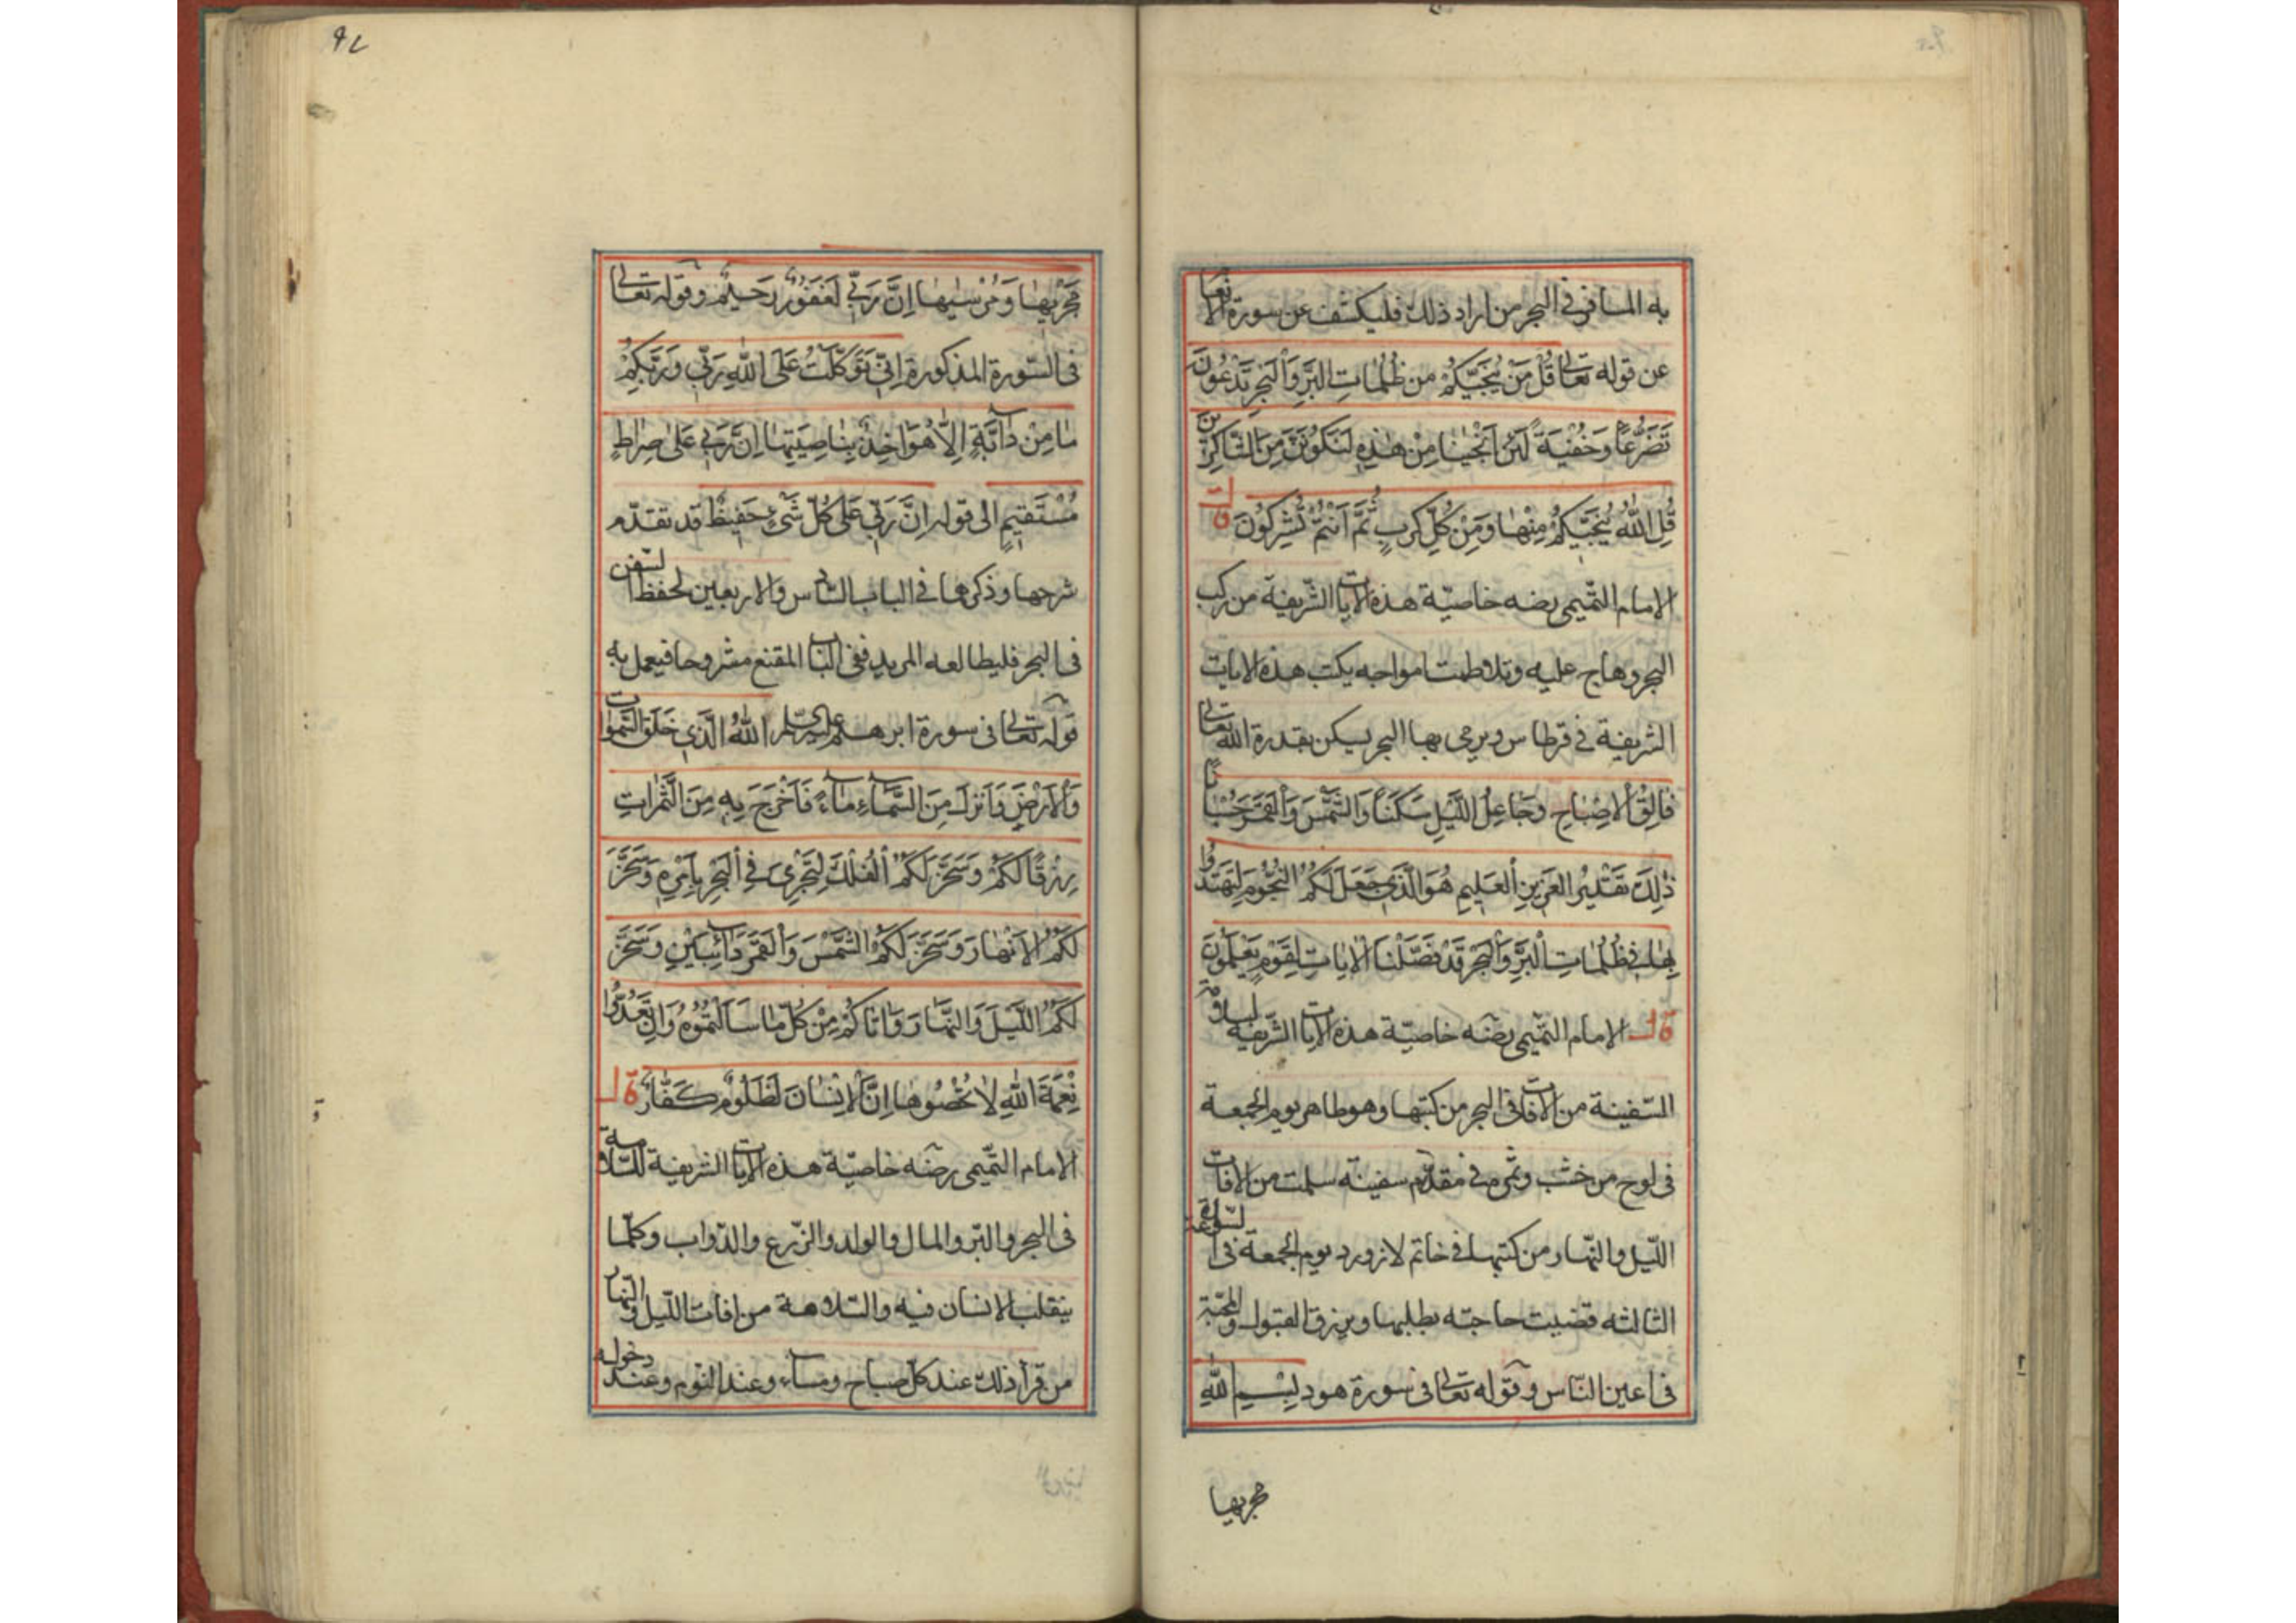 به المسافر في البحر من اراد ذلك فليكشف عن سورة الانعا
عن قوله تعالى قُلْ مَنْ يُنَجِّيكُمْ مِن ظُلُمَاتِ البَرِّ وَالْبَحْرِ تَدْعُونَه
تَضَرُّعًا وَخُفْيَةً لَئِنْ اَنْجٰينَا مِنْ هٰذِهِ لَنَكُونَنَّ مِنَ الشَّاكِرِينَ
قُلِ اللّٰهُ يُنَجِّيكُمْ مِنْهَا وَمِنْ كُلِّ كَرْبٍ ثُمَّ اَنْتُمْ تُشْرِكُونَ قال
الامام التميمى رضه خاصيّة هذه الايات الشّريفة من ركب
البحر وهاج عليه وتلاطمت امواجه يكتب هذه الايات
الشريفة في قرطاس ويرمى بها البحر يسكن بقدرة الله تعالى
فَالِقُ الْاِصْبَاحِ وَجَاعِلُ اللَّيْلِ سَكَنًا وَالشَّمْسَ وَالْقَمَرَ حُسْبَانًا
ذٰلِكَ تَقْدِيرُ الْعَزِيزِ الْعَلِيمِ هُوَ الَّذِي جَعَلَ لَكُمُ النُّجُومَ لِتَهْتَدُوا
بِهَا فِي ظُلُمَاتِ الْبَرِّ وَالْبَحْرِ قَدْ فَصَّلْنَا الْاٰيَاتِ لِقَوْمٍ يَعْلَمُونَ
قال الامام التّميمى رضه خاصيّة هذه الايات الشّريفة لسلامة
السّفينة من الآفات في البحر من كتبها وهو طاهر يوم الجمعة
فى لوح من خشب وسمّره في مقدّم سفينة سلمت من الآفات
اللّيل والنّهار ومن كتبها في خاتم لازورد يوم الجمعة فى السّاعة
الثالثه قضيت حاجته بطلبها ويرزق القبول والمحبّة
فى اعين النّاس وقوله تعالى فى سورة هود بِسْمِ اللّٰهِ
مجريها
٩٢
مَجْرٰيهَا وَمُرْسٰيهَا اِنَّ رَبِّي لَغَفُورٌ رَحِيمٌ وقوله تعالى
فى السّورة المذكورة اِنِّي تَوَكَّلْتُ عَلَى اللّٰهِ رَبِّي وَرَبِّكُمْ
مَا مِنْ دَآبَّةٍ اِلَّا هُوَ اٰخِذٌ بِنَاصِيَتِهَا اِنَّ رَبِّي عَلٰى صِرَاطٍ
مُسْتَقِيمٍ الى قوله اِنَّ رَبِّي عَلٰى كُلِّ شَيْءٍ حَفِيظٌ قد تقدّم
شرحها وذكرها في الباب السّادس والاربعين لحفظ السّفن
فى البحر فليطالعه المريد ففى الباب المقنع مشروحا فيعمل به
قوله تعالى فى سورة ابرهيم عليه السّلم اَللّٰهُ الَّذِي خَلَقَ السَّمٰوَاتِ
وَالْاَرْضَ وَاَنْزَلَ مِنَ السَّمَآءِ مَآءً فَاَخْرَجَ بِهِ مِنَ الثَّمَرَاتِ
رِزْقًا لَكُمْ وَسَخَّرَ لَكُمُ الْفُلْكَ لِتَجْرِيَ فِي الْبَحْرِ بِاَمْرِهِ وَسَخَّرَ
لَكُمُ الْاَنْهَارَ وَسَخَّرَ لَكُمُ الشَّمْسَ وَالْقَمَرَ دَآئِبَيْنِ وَسَخَّرَ
لَكُمُ اللَّيْلَ وَالنَّهَارَ وَاٰتَاكُمْ مِنْ كُلِّ مَا سَاَلْتُمُوهُ وَاِنْ تَعُدُّوا
نِعْمَةَ اللّٰهِ لَا تُحْصُوهَا اِنَّ الْاِنْسَانَ لَظَلُومٌ كَفَّارٌ قال
الامام التّميمى رضه خاصيّة هذه الايات الشريفة للسّلامة
فى البحر والبرّ والمال والولد والزّرع والدّواب وكلّما
ينقلب الانسان فيه والسّلامة من افات اللّيل والنهار
من قرأ ذلك عند كلّ صباح ومسآء وعند النّوم وعند دخوله